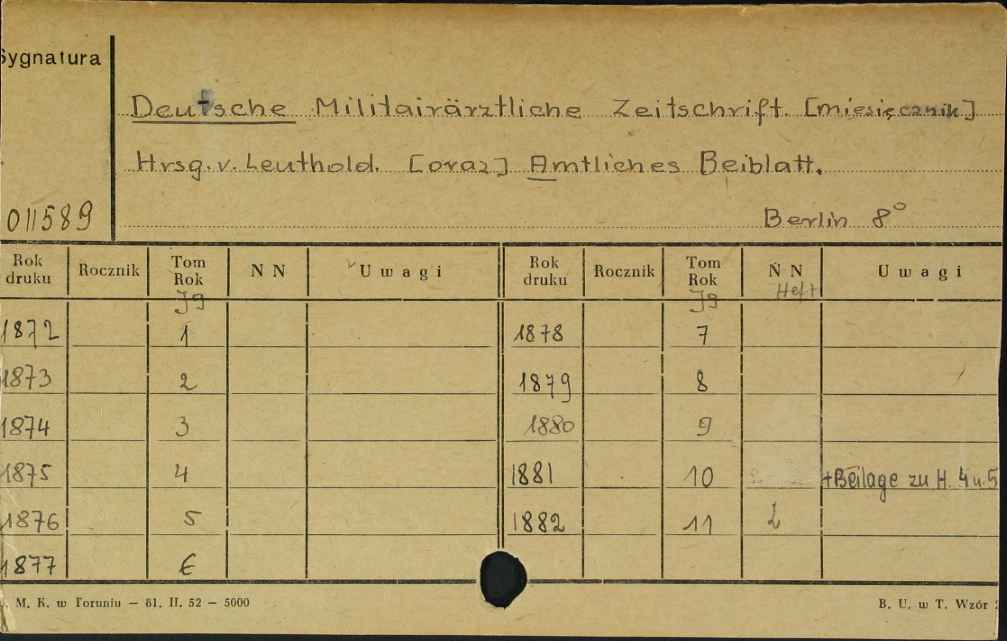 Sygnatura
Deutsche Militairärztliche Zeitschrift. [miesięcznik]
Hrsg. v. Leuthold. [oraz] Amtliches Beiblatt.
011589
Berlin 8°
Rok druku Rocznik Tom Rok Jg N N Uwagi Rok druku Rocznik Tom Rok Jg N N Heft Uwagi
1872 1 1878 7
1873 2 1879 8
1874 3 1880 9
1875 4 1881 10 +Beilage zu H. 4 u. 5
1876 5 1882 11 2
1877 6
M. K. w Toruniu — 61. II. 52 — 5000
B. U. w T. Wzór